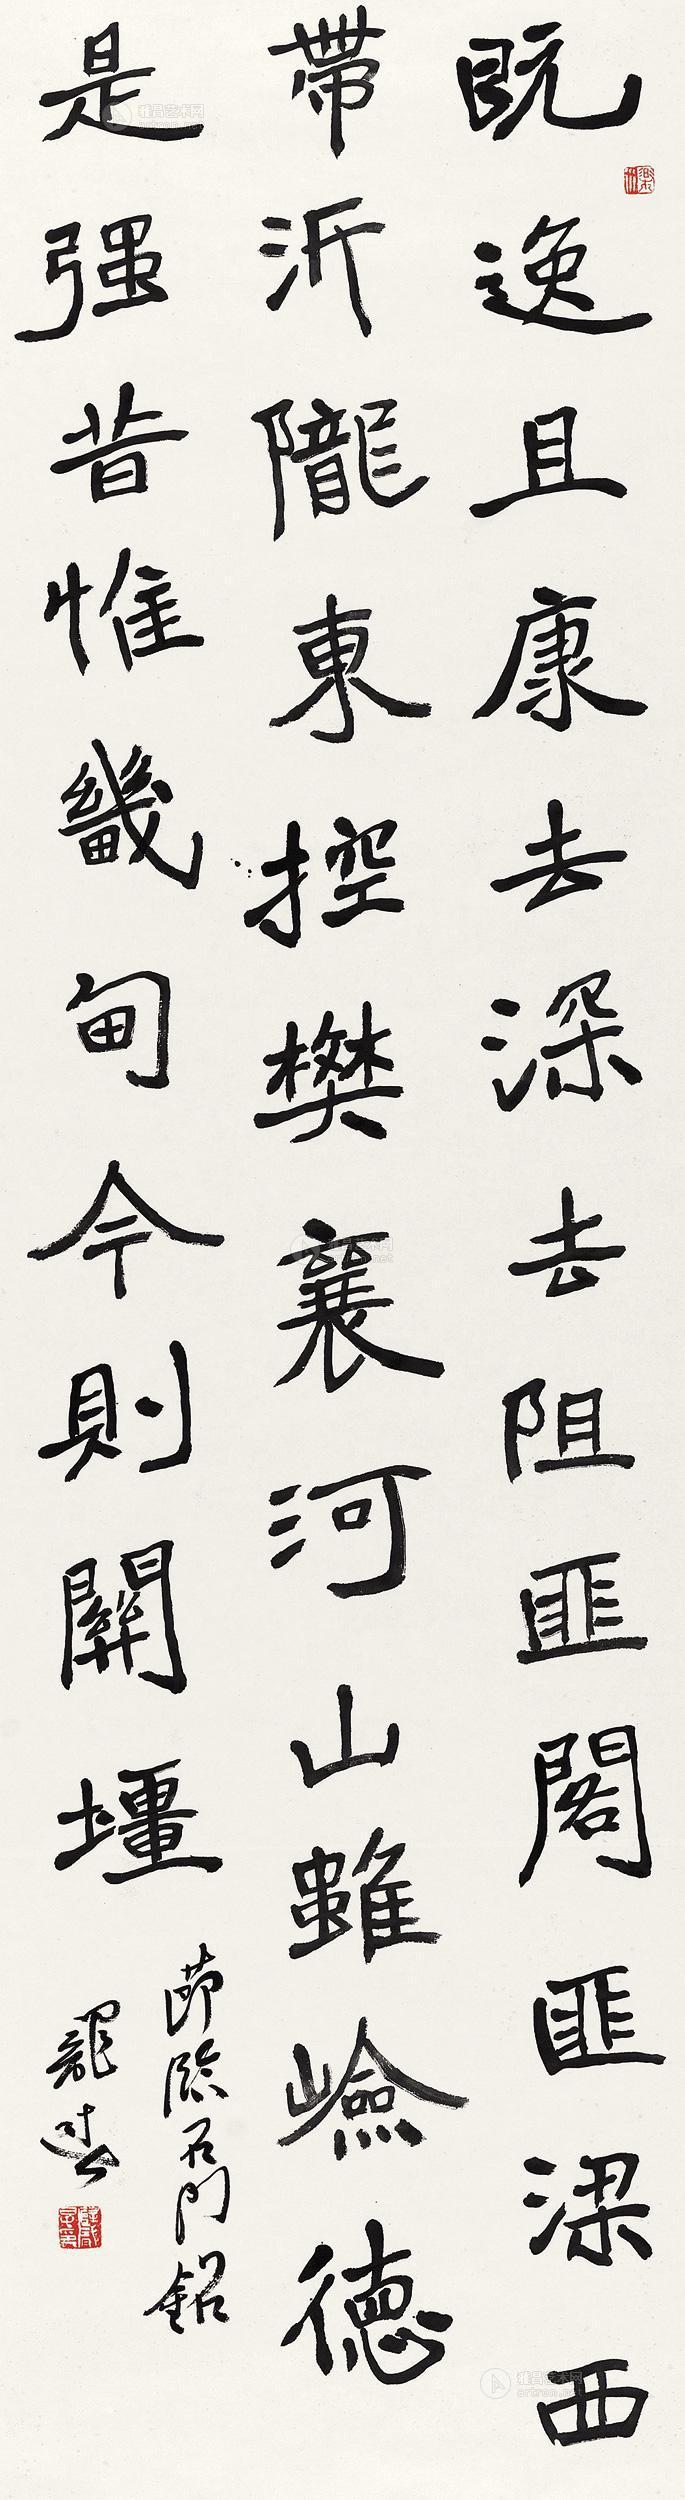 既逸且康去深去阻匪閣匪梁西
帶汧隴東控樊襄河山雖嶮德
是强昔惟畿甸今則關壃
節臨石門銘
龍
雅昌艺术网
artron.net